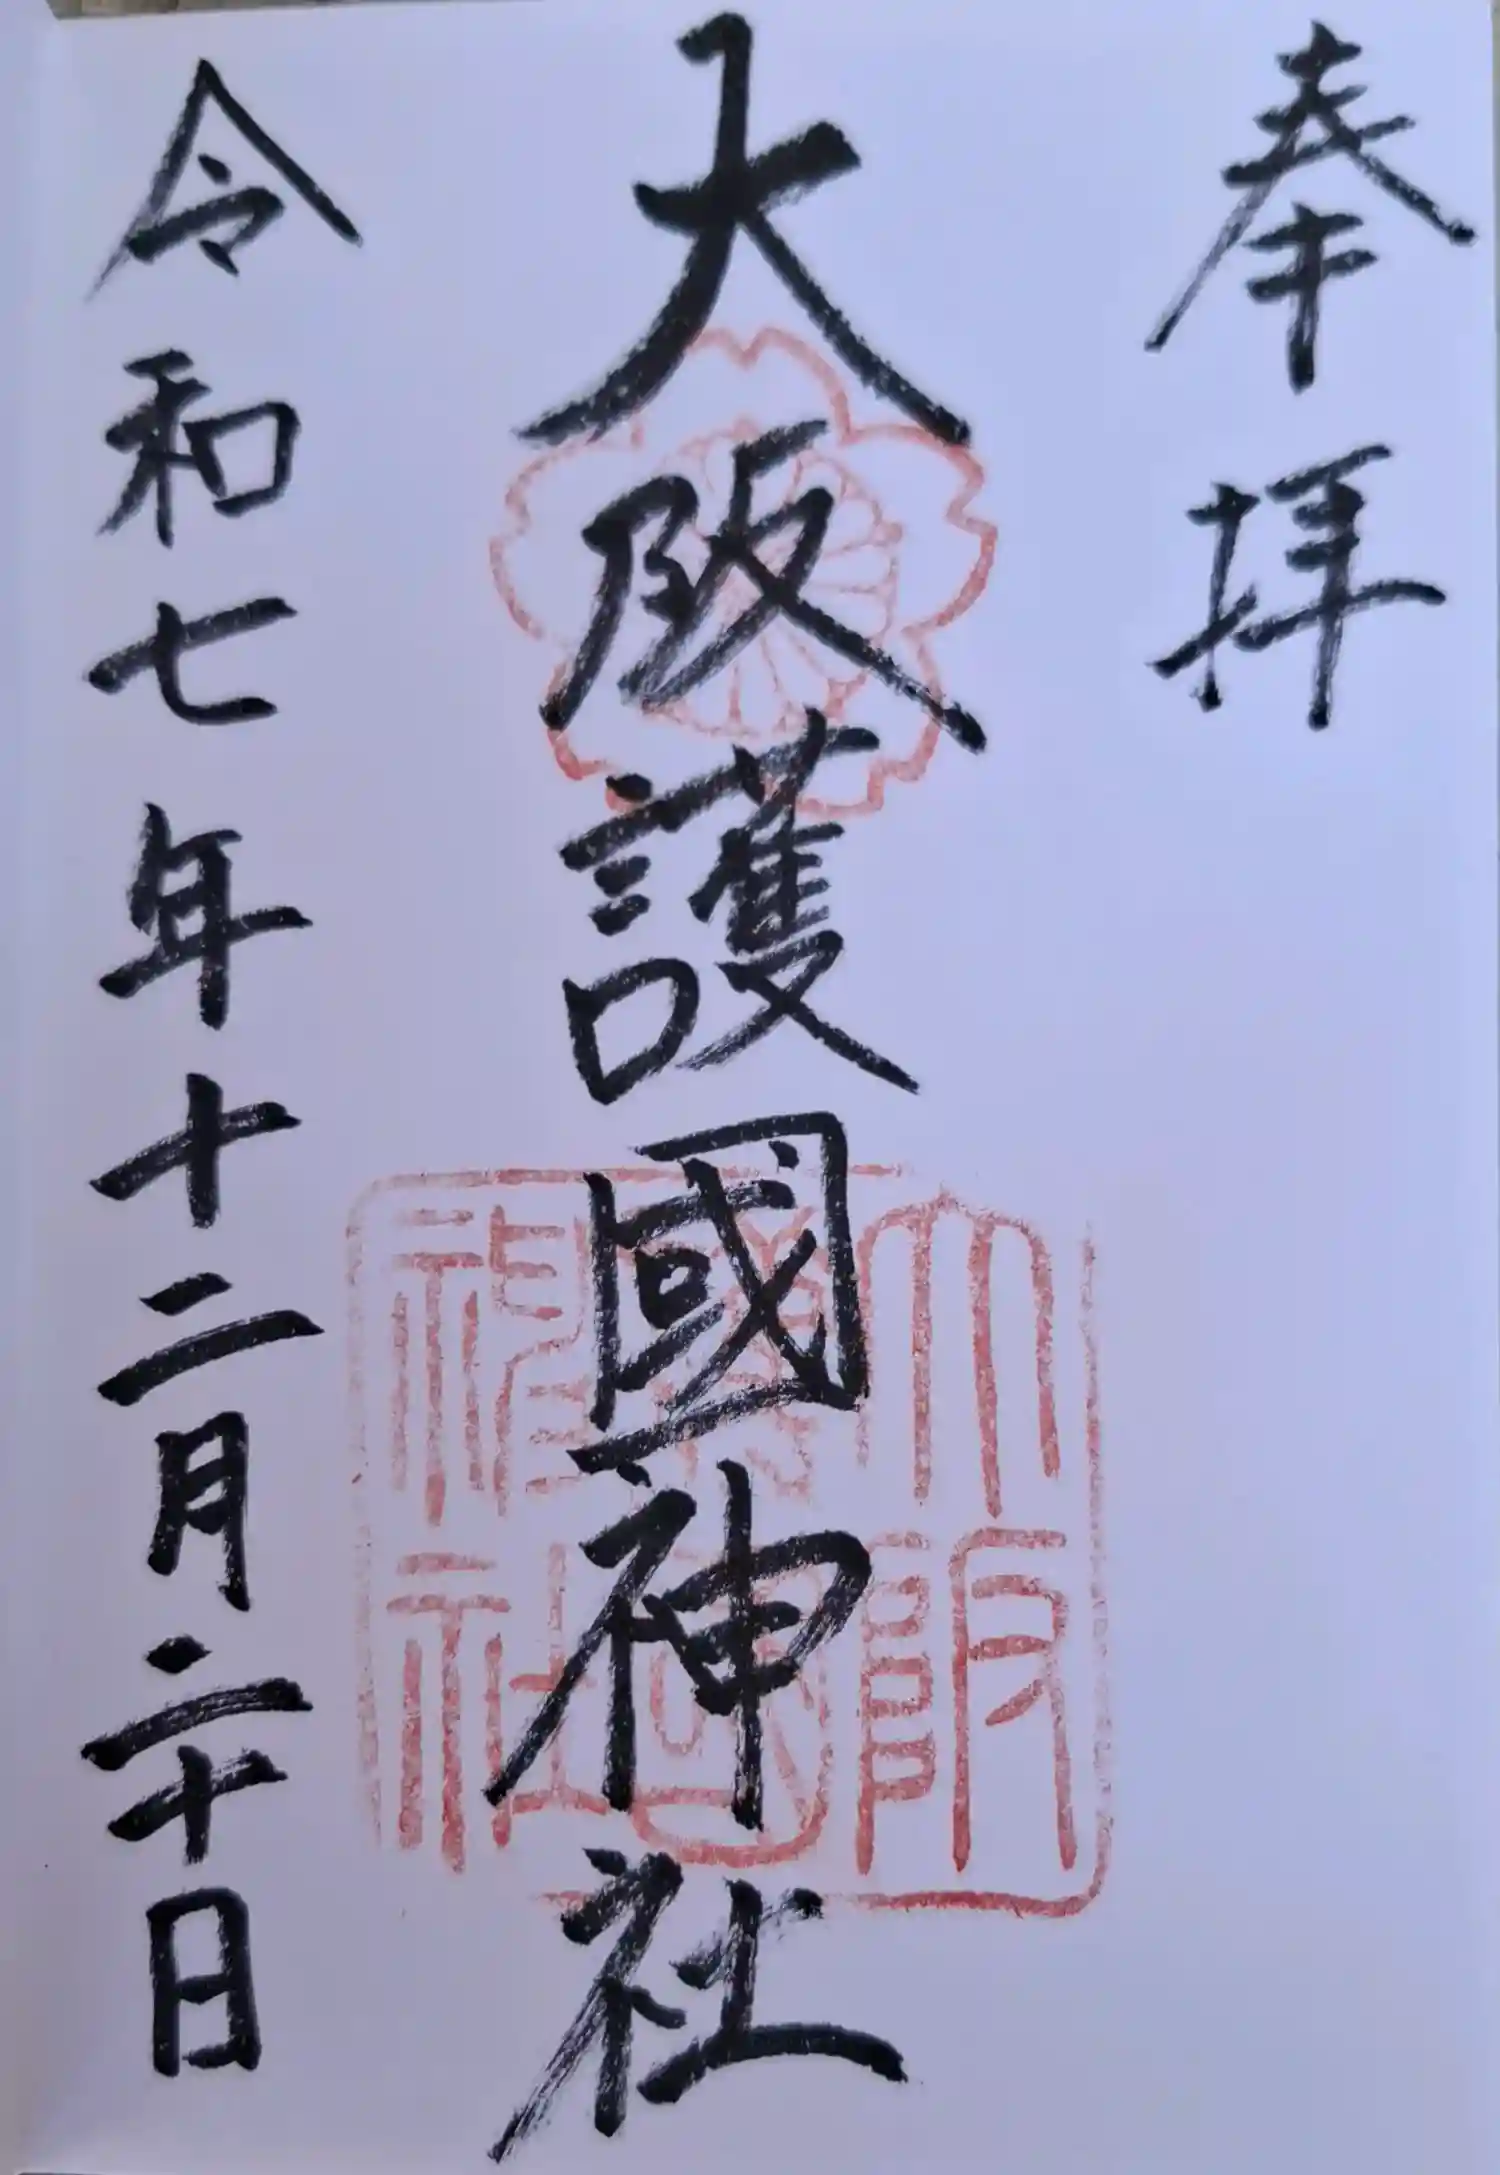 奉拝
大阪護國神社
大阪護國神社
令和七年十二月二十日